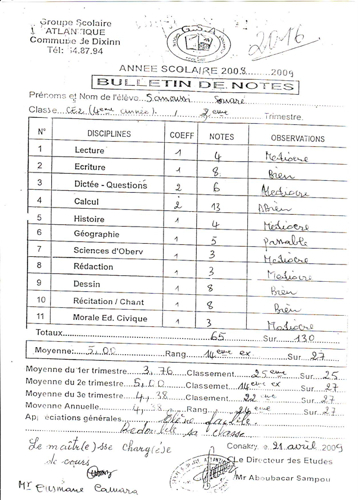 Groupe Scolaire
ATLANTIQUE
Commune de Dixinn
Tél: 54.87.94
G.S.A
2016
ANNEE SCOLAIRE 2008 2009
BULLETIN DE NOTES
Prénoms et Nom de l'élève Sanoussi Souaré
Classe CE2 (4ème année) 2ème Trimestre.
N° DISCIPLINES COEFF NOTES OBSERVATIONS
1 Lecture 1 4 Mediocre
2 Ecriture 1 8 Bien
3 Dictée - Questions 2 6 Mediocre
4 Calcul 2 13 ABien
5 Histoire 1 4 Mediocre
6 Géographie 1 5 passable
7 Sciences d'Oberv 1 3 Mediocre
8 Rédaction 1 3 Mediocre
9 Dessin 1 8 Bien
10 Récitation / Chant 1 8 Bien
11 Morale Ed. Civique 1 3 Mediocre
Totaux 65 Sur 130
Moyenne: 5,00 Rang 14eme ex Sur 27
Moyenne du 1er trimestre 3,76 Classement 25eme Sur 25
Moyenne du 2e trimestre 5,00 Classemet 14eme ex Sur 27
Moyenne du 3e trimestre 4,38 Classement 22eme Sur 27
Moyenne Annuelle 4,38 Rang 24eme Sur 27
Appréciations générales Elève faible
Redouble sa classe
Conakry, le 21 avril 2009
Le maître(sse) chargé(e)
de cours
Le Directeur des Etudes
Mr Ousmane Camara
Mr Aboubacar Sampou